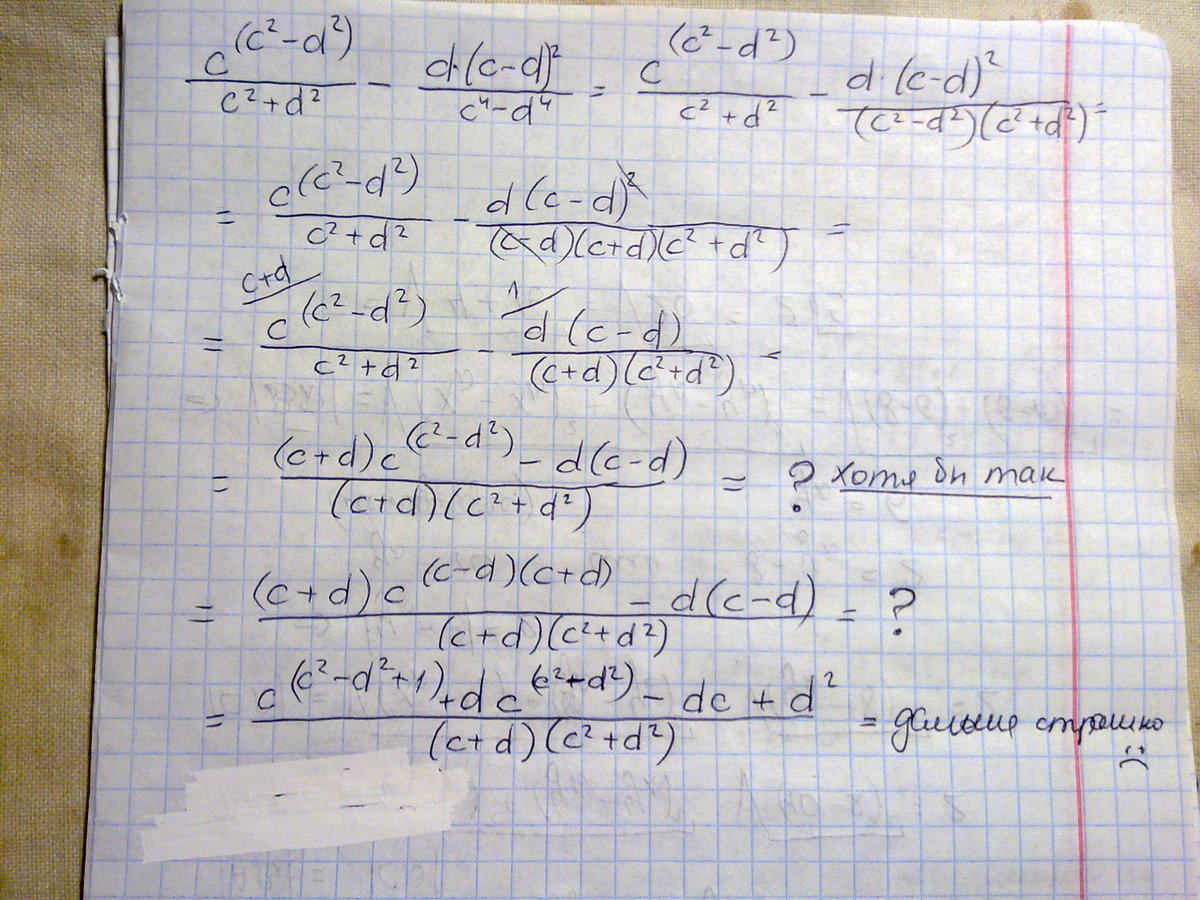 c^(c²-d²)/(c²+d²) - d·(c-d)²/(c⁴-d⁴) = c^(c²-d²)/(c²+d²) - d·(c-d)²/((c²-d²)(c²+d²)) =
= c^(c²-d²)/(c²+d²) - d(c-d)²/((c-d)(c+d)(c²+d²)) =
c+d 1
= c^(c²-d²)/(c²+d²) - d(c-d)/((c+d)(c²+d²)) =
= ((c+d)c^(c²-d²) - d(c-d))/((c+d)(c²+d²)) = ? хотя бы так
= ((c+d)c^((c-d)(c+d)) - d(c-d))/((c+d)(c²+d²)) = ?
= (c^(c²-d²+1) + dc^(c²-d²) - dc + d²)/((c+d)(c²+d²)) = дальше страшно :(